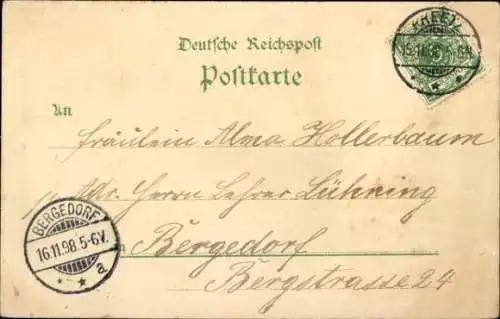 PREETZ
15.11.98.5-6N.
Deutsche Reichspost
Postkarte
An
Fräulein Alma Hollerbaum
Adr. Herrn Lehrer Lühring
BERGEDORF
16.11.98.5-6V.
a
Bergedorf
Bergstrasse 24